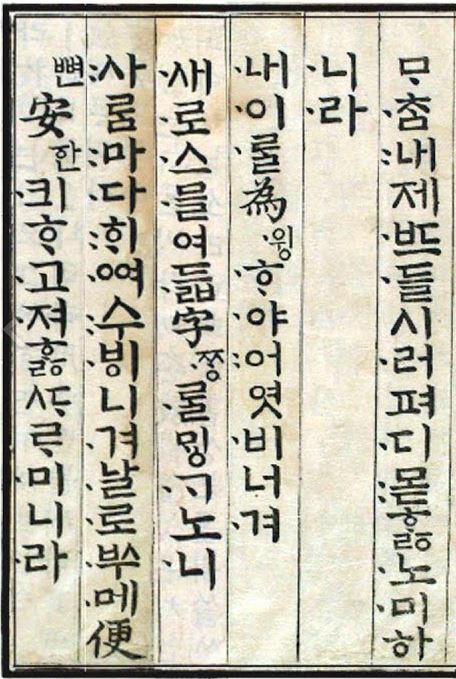 ᄆᆞᄎᆞᆷ내제ᄠᅳ들시러펴디몯ᄒᆞᇙ노미하
니라
내이ᄅᆞᆯ為윙ᄒᆞ야어엿비너겨
새로스믈여듧字ᄍᆞᆼᄅᆞᆯᄆᆡᇰᄀᆞ노니
사ᄅᆞᆷ마다ᄒᆡᅇᅧ수ᄫᅵ니겨날로ᄡᅮ메便
뼌安ᅙᅡᆫ킈ᄒᆞ고져ᄒᆞᇙᄯᆞᄅᆞ미니라